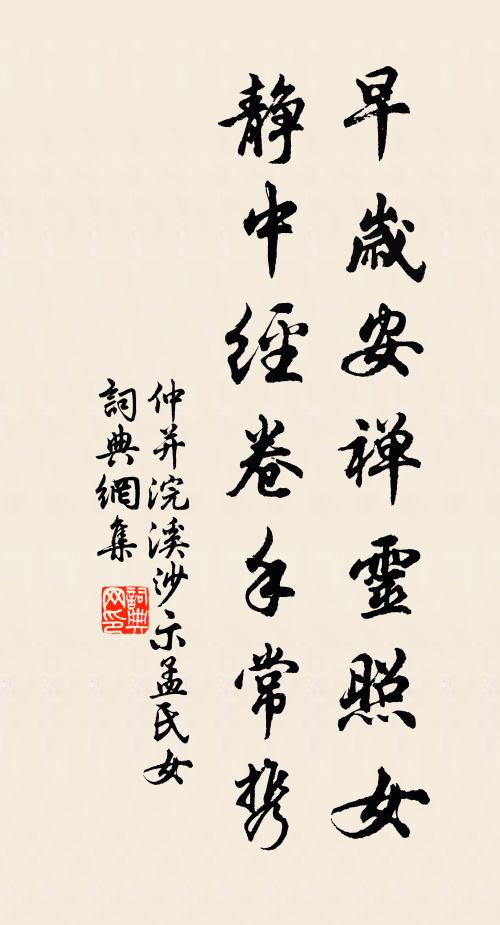 早歲安禅靈照女
静中經卷手常携
仲并浣溪沙示孟氏女
詞典網集
詞典网印